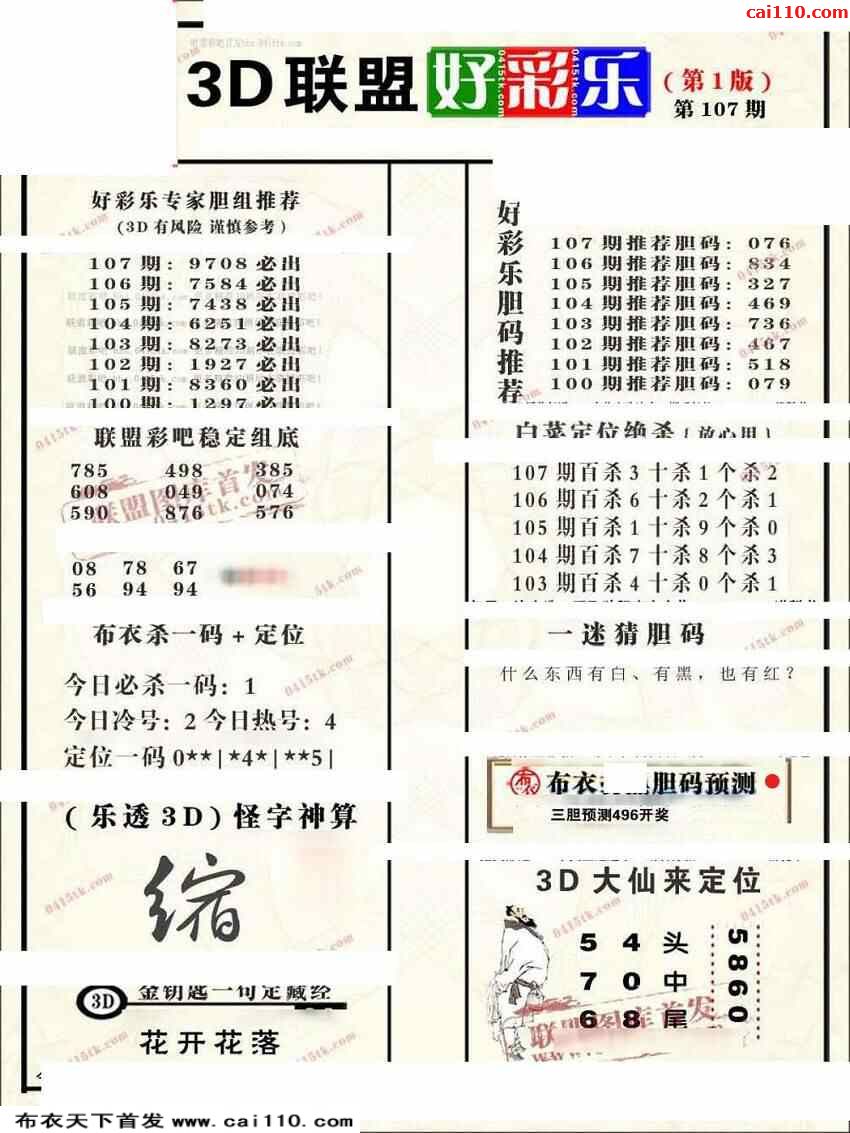 cai110.com
3D联盟 好彩乐 (第1版)
第107期
好彩乐专家胆组推荐
(3D有风险 谨慎参考)
107期: 9708必出
106期: 7584必出
105期: 7438必出
104期: 6251必出
103期: 8273必出
102期: 1927必出
101期: 8360必出
100期: 1297必出
联盟彩吧稳定组底
785 498 385
608 049 074
590 876 576
08 78 67
56 94 94
布衣杀一码+定位
今日必杀一码: 1
今日冷号: 2 今日热号: 4
定位一码0**|*4*|**5|
(乐透3D)怪字神算
缩
3D 金钥匙一句定藏经
花开花落
好彩乐胆码推荐
107期推荐胆码: 076
106期推荐胆码: 834
105期推荐胆码: 327
104期推荐胆码: 469
103期推荐胆码: 736
102期推荐胆码: 467
101期推荐胆码: 518
100期推荐胆码: 079
白菜定位绝杀(放心用)
107期百杀3十杀1个杀2
106期百杀6十杀2个杀1
105期百杀1十杀9个杀0
104期百杀7十杀8个杀3
103期百杀4十杀0个杀1
一迷猜胆码
什么东西有白、有黑，也有红?
布衣 胆码预测
三胆预测496开奖
3D大仙来定位
5 4 头
7 0 中
6 8 尾
5860
联盟图库首发
0415tk.com
布衣天下首发 www.cai110.com